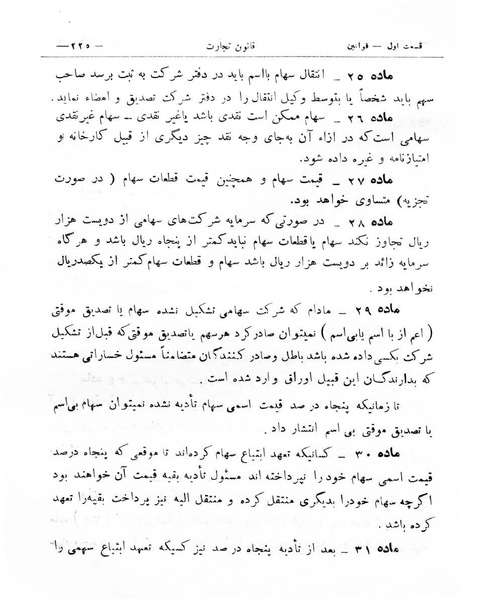 قسمت اول — قوانین قانون تجارت — ۲۲۵—
ماده ۲۵ – انتقال سهام بااسم باید در دفتر شرکت به ثبت برسد صاحب
سهم باید شخصاً یا بتوسط وکیل انتقال را در دفتر شرکت تصدیق و امضاء نماید.
ماده ۲۶ – سهام ممکن است نقدی باشد یاغیر نقدی – سهام غیرنقدی
سهامی است‌که در ازاء آن به‌جای وجه نقد چیز دیگری از قبیل کارخانه و
امتیازنامه و غیره داده شود.
ماده ۲۷ – قیمت سهام و همچنین قیمت قطعات سهام ( در صورت
تجزیه) متساوی خواهد بود.
ماده ۲۸ – در صورتی‌که سرمایه شرکت‌های سهامی از دویست هزار
ریال تجاوز نکند سهام یاقطعات سهام نباید کمتر از پنجاه ریال باشد و هر گاه
سرمایه زائد بر دویست هزار ریال باشد سهام و قطعات سهام کمتر از یکصدریال
نخواهد بود .
ماده ۲۹ – مادام که شرکت سهامی تشکیل نشده سهام یا تصدیق موقتی
( اعم از با اسم یابی‌اسم ) نمیتوان صادرکرد هرسهم یاتصدیق موقتی‌که قبل‌از تشکیل
شرکت بکسی‌داده شده باشد باطل وصادر کنندگان متضامناً مسئول خساراتی هستند
که بدارندگان این قبیل اوراق وارد شده است .
تا زمانیکه پنجاه در صد قیمت اسمی سهام تأدیه نشده نمیتوان سهام بی‌اسم
یا تصدیق موقتی بی اسم انتشار داد .
ماده ۳۰ – کسانیکه تعهد ابتیاع سهام کرده‌اند تا موقعی که پنجاه درصد
قیمت اسمی سهام خود را نپرداخته اند مسئول تأدیه بقیه قیمت آن خواهند بود
اگرچه سهام خودرا بدیگری منتقل کرده و منتقل الیه نیز پرداخت بقیه‌را تعهد
کرده باشد .
ماده ۳۱ – بعد از تأدیه پنجاه در صد نیز کسیکه تعهد ابتیاع سهمی را